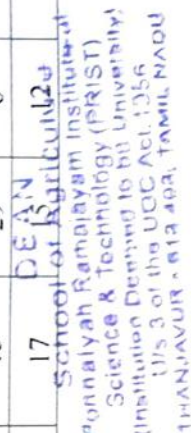 17 15 12
DEAN
School of Agriculture
Ponnaiyah Ramajayam Institute of
Science & Technology (PRIST)
(Institution Deeming to be University)
U/s 3 of the UGC Act. 1956
THANJAVUR - 613 403, TAMIL NADU